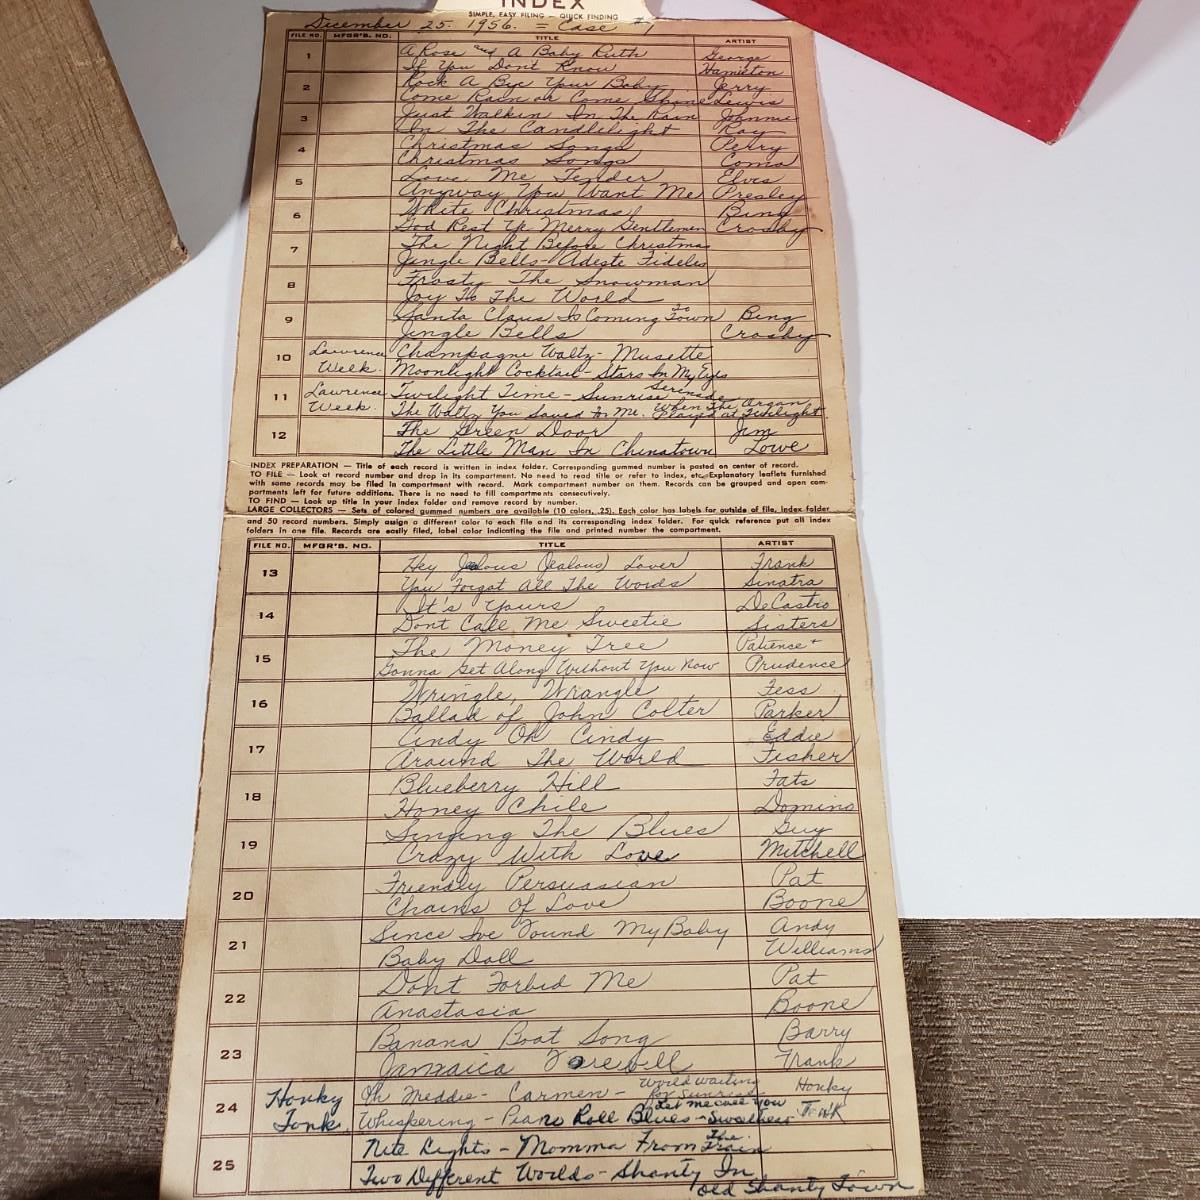 INDEX
SIMPLE, EASY FILING — QUICK FINDING
December 25. 1956. = Case #1
FILE NO. MFGR'S. NO. TITLE ARTIST
1 A Rose and A Baby Ruth George
If You Dont Know Hamilton
2 Rock A Bye Your Baby Jerry
Come Rain or Come Shine Lewis
3 Just Walkin In The Rain Johnnie
In The Candlelight Ray
4 Christmas Songs Perry
Christmas Songs Como
5 Love Me Tender Elvis
Anyway You Want Me Presley
6 White Christmas Bing
God Rest Ye Merry Gentlemen Crosby
7 The Night Before Christmas
Jingle Bells - Adeste Fideles
8 Frosty The Snowman
Joy To The World
9 Santa Claus Is Coming To Town Bing
Jingle Bells Crosby
10 Lawrence Champagne Waltz - Musette
Welk. Moonlight Cocktail - Stars In My Eyes
11 Lawrence Twilight Time - Sunrise Serenade
Welk. The Waltz You Saved For Me. When The Organ Played at Twilight
12 The Green Door Jim
The Little Man In Chinatown Lowe
INDEX PREPARATION — Title of each record is written in index folder. Corresponding gummed number is pasted on center of record.
TO FILE — Look at record number and drop in its compartment. No need to read title or refer to index, etc. Explanatory leaflets furnished
with some records may be filed in compartment with record. Mark compartment number on them. Records can be grouped and open com-
partments left for future additions. There is no need to fill compartments consecutively.
TO FIND — Look up title in your index folder and remove record by number.
LARGE COLLECTORS — Sets of colored gummed numbers are available (10 colors, .25). Each color has labels for outside of file, index folder
and 50 record numbers. Simply assign a different color to each file and its corresponding index folder. For quick reference put all index
folders in one file. Records are easily filed, label color indicating the file and printed number the compartment.
FILE NO. MFGR'S. NO. TITLE ARTIST
13 Hey Jealous (Jealous) Lover Frank
You Forgot All The Words Sinatra
14 It's Yours DeCastro
Dont Call Me Sweetie Sisters
15 The Money Tree Patience +
Gonna Get Along Without You Now Prudence
16 Wringle, Wrangle Fess
Ballad of John Colter Parker
17 Cindy Oh Cindy Eddie
Around The World Fisher
18 Blueberry Hill Fats
Honey Chile Domino
19 Singing The Blues Guy
Crazy With Love Mitchell
20 Friendly Persuasian Pat
Chains Of Love Boone
21 Since Ive Found My Baby Andy
Baby Doll Williams
22 Dont Forbid Me Pat
Anastasia Boone
23 Banana Boat Song Barry
Jamaica Farewell Frank
24 Honky Oh Meddie - Carmen - World Waiting For Sunrise Honky
Tonk. Whispering - Piano Roll Blues - Let me call you Sweetheart Tonk
25 Nite Lights - Momma From The Train
Two Different Worlds - Shanty In old Shanty Town